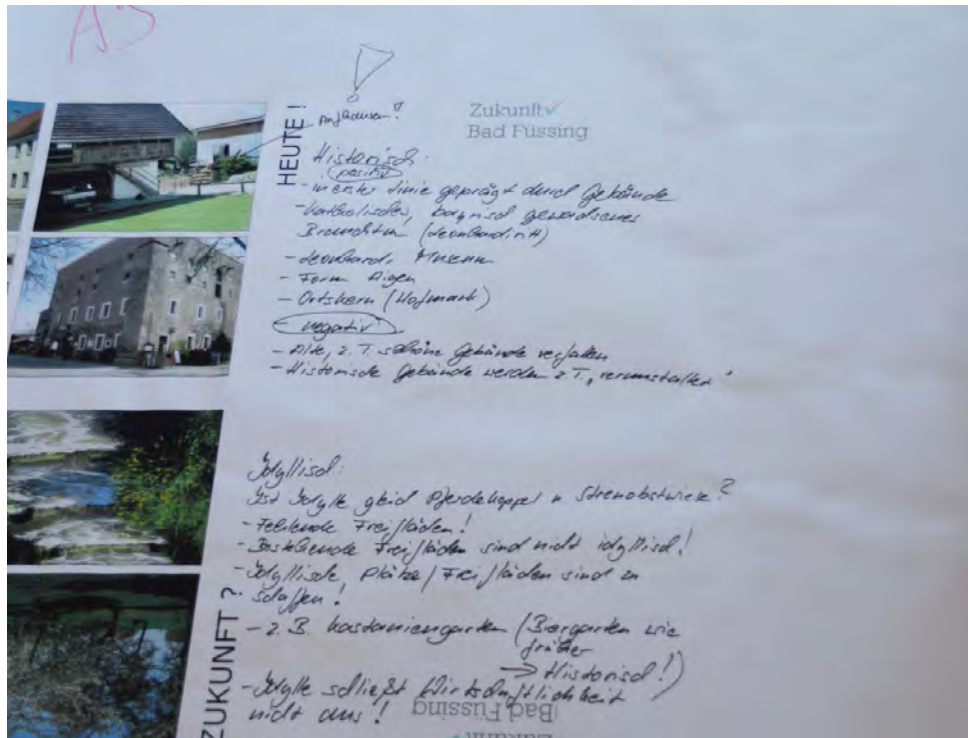 A3
!
Zukunft
Bad Füssing
HEUTE !
Historisch:
positiv
- in erster Linie geprägt durch Gebäude
- Katholisches, bayrisch gewachsenes
Brauchtum (Leonhardiritt)
- Leonhardi Museum
- Form Aigen
- Ortskern (Hofmark)
- negativ
- Alte, z. T. schöne Gebäude verfallen
- Historische Gebäude werden z. T. „verunstaltet"
Idyllisch:
Ist Idylle gleich Pferdekoppel u Streuobstwiese?
- Fehlende Freiflächen!
- Bestehende Freiflächen sind nicht idyllisch!
- Idyllische Plätze / Freiflächen sind zu
schaffen!
- z. B. Kastaniengarten (Biergarten wie
früher
→ Historisch!)
- Idylle schließt Wirtschaftlichkeit
nicht aus!
ZUKUNFT ?
Bad Füssing
Zukunft